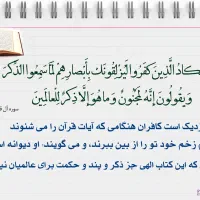 كَادُ الَّذِينَ كَفَرُوا لَيُزْلِقُونَكَ بِأَبْصَارِهِمْ لَمَّا سَمِعُوا الذِّكْرَ
وَيَقُولُونَ إِنَّهُ لَمَجْنُونٌ وَمَا هُوَ إِلَّا ذِكْرٌ لِلْعَالَمِينَ
سوره
زدیک است کافران هنگامی که آیات قرآن را می شنوند
زخم خود تو را از بین ببرند، و می گویند: او دیوانه
که این کتاب الهی جز ذکر و پند و حکمت برای عالمیان